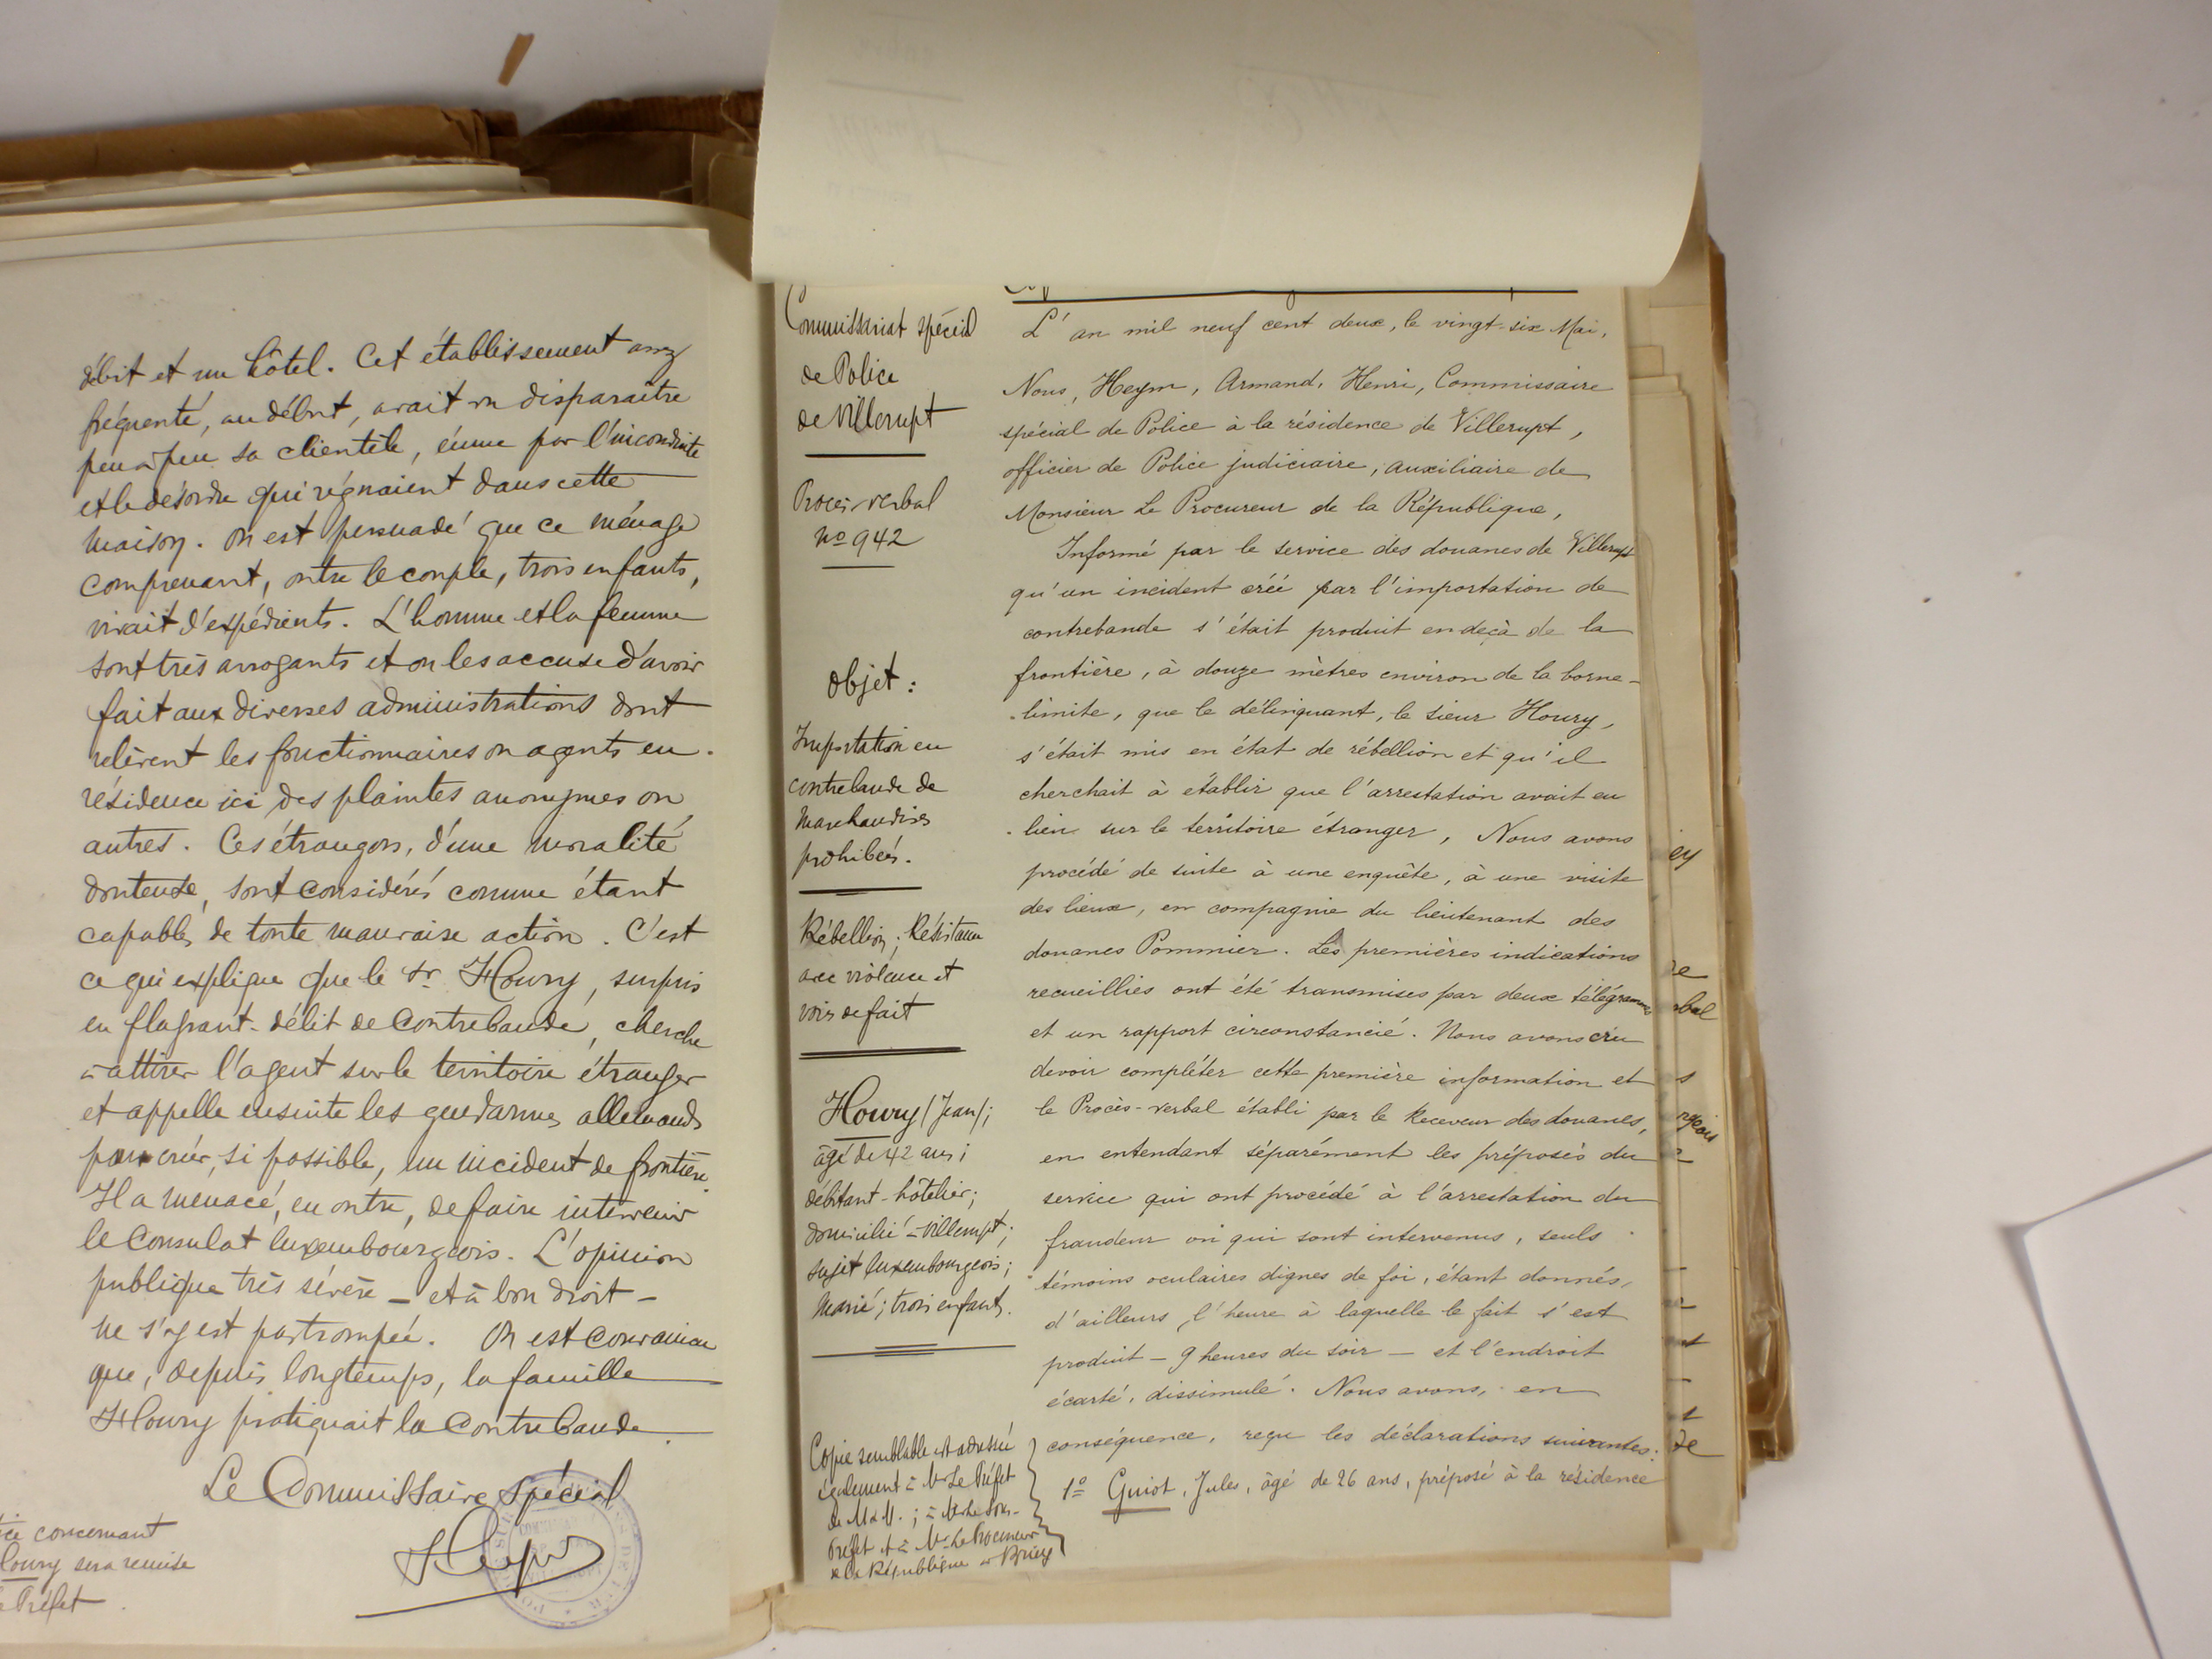 débit et un hôtel. Cet établissement assez
fréquenté, au début, avait vu disparaître
peu à peu sa clientèle, émue par l'inconduite
et le désordre qui régnaient dans cette
maison. On est persuadé que ce ménage
comprenant, outre le couple, trois enfants,
vivait d'expédients. L'homme et la femme
sont très arrogants et on les accuse d'avoir
fait aux diverses administrations dont
relèvent les fonctionnaires ou agents en
résidence ici des plaintes anonymes ou
autres. Ces étrangers, d'une moralité
douteuse, sont considérés comme étant
capables de toute mauvaise action. C'est
ce qui explique que le Sr Houry, surpris
en flagrant-délit de contrebande, cherche
à attirer l'agent sur le territoire étranger
et appelle ensuite les gendarmes allemands
pour créer, si possible, un incident de frontière.
Il a menacé, en outre, de faire intervenir
le Consulat luxembourgeois. L'opinion
publique très sévère – et à bon droit –
ne s'y est pas trompée. On est convaincu
que, depuis longtemps, la famille
Houry pratiquait la contrebande.
Le Commissaire spécial
concernant
Houry sera remise
Préfet.
Commissariat spécial
de Police
de Villerupt
Procès-verbal
No 942
Objet :
Importation en
contrebande de
marchandises
prohibées.
Rébellion ; Résistance
avec violence et
voies de fait
Houry (Jean) ;
âgé de 42 ans ;
débitant-hôtelier ;
domicilié à Villerupt ;
sujet luxembourgeois ;
marié ; trois enfants.
Copie semblable est adressée
également à Mr Le Préfet
de M & M. ; à Mr Le Sous-
Préfet et à Mr Le Procureur
de la République à Briey
L'an mil neuf cent deux, le vingt-six Mai,
Nous, Heym, Armand, Henri, Commissaire
spécial de Police à la résidence de Villerupt,
officier de Police judiciaire, auxiliaire de
Monsieur Le Procureur de la République,
Informé par le service des douanes de Villerupt
qu'un incident créé par l'importation de
contrebande s'était produit en deçà de la
frontière, à douze mètres environ de la borne-
limite, que le délinquant, le sieur Houry,
s'était mis en état de rébellion et qu'il
cherchait à établir que l'arrestation avait eu
lieu sur le territoire étranger, Nous avons
procédé de suite à une enquête, à une visite
des lieux, en compagnie du lieutenant des
douanes Pommier. Les premières indications
recueillies ont été transmises par deux télégrammes
et un rapport circonstancié. Nous avons cru
devoir compléter cette première information et
le Procès-verbal établi par le Receveur des douanes,
en entendant séparément les préposés du
service qui ont procédé à l'arrestation du
fraudeur ou qui sont intervenus, seuls
témoins oculaires dignes de foi, étant donnés,
d'ailleurs, l'heure à laquelle le fait s'est
produit – 9 heures du soir – et l'endroit
écarté, dissimulé. Nous avons, en
conséquence, reçu les déclarations suivantes :
1º Guiot, Jules, âgé de 26 ans, préposé à la résidence